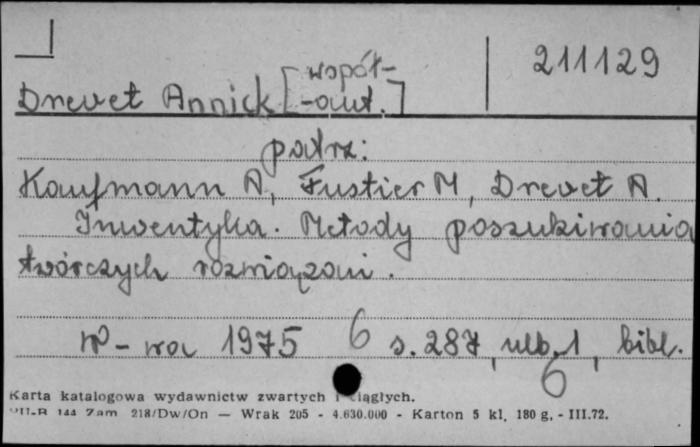 211129
Drevet Annick [współ-
-aut.]
patrz:
Kaufmann A, Fustier M, Drevet A.
Inwentyka. Metody poszukiwania
twórczych rozwiązań.
W-wa 1975 6 s. 287, nlb. 1, bibl.
6
Karta katalogowa wydawnictw zwartych i ciągłych.
144 Zam. 218/Dw/On — Wrak 205 - 4.630.000 - Karton 5 kl, 180 g, - III.72.